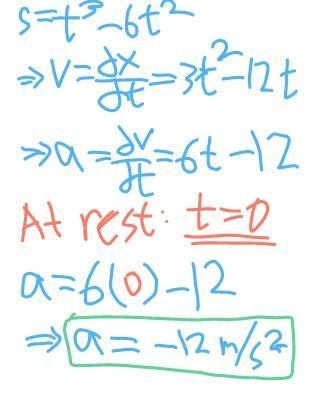 s=t³-6t²
⇒V=dx/dt=3t²-12t
⇒a=dv/dt=6t-12
At rest: t=0
a=6(0)-12
⇒ a=-12 m/s²